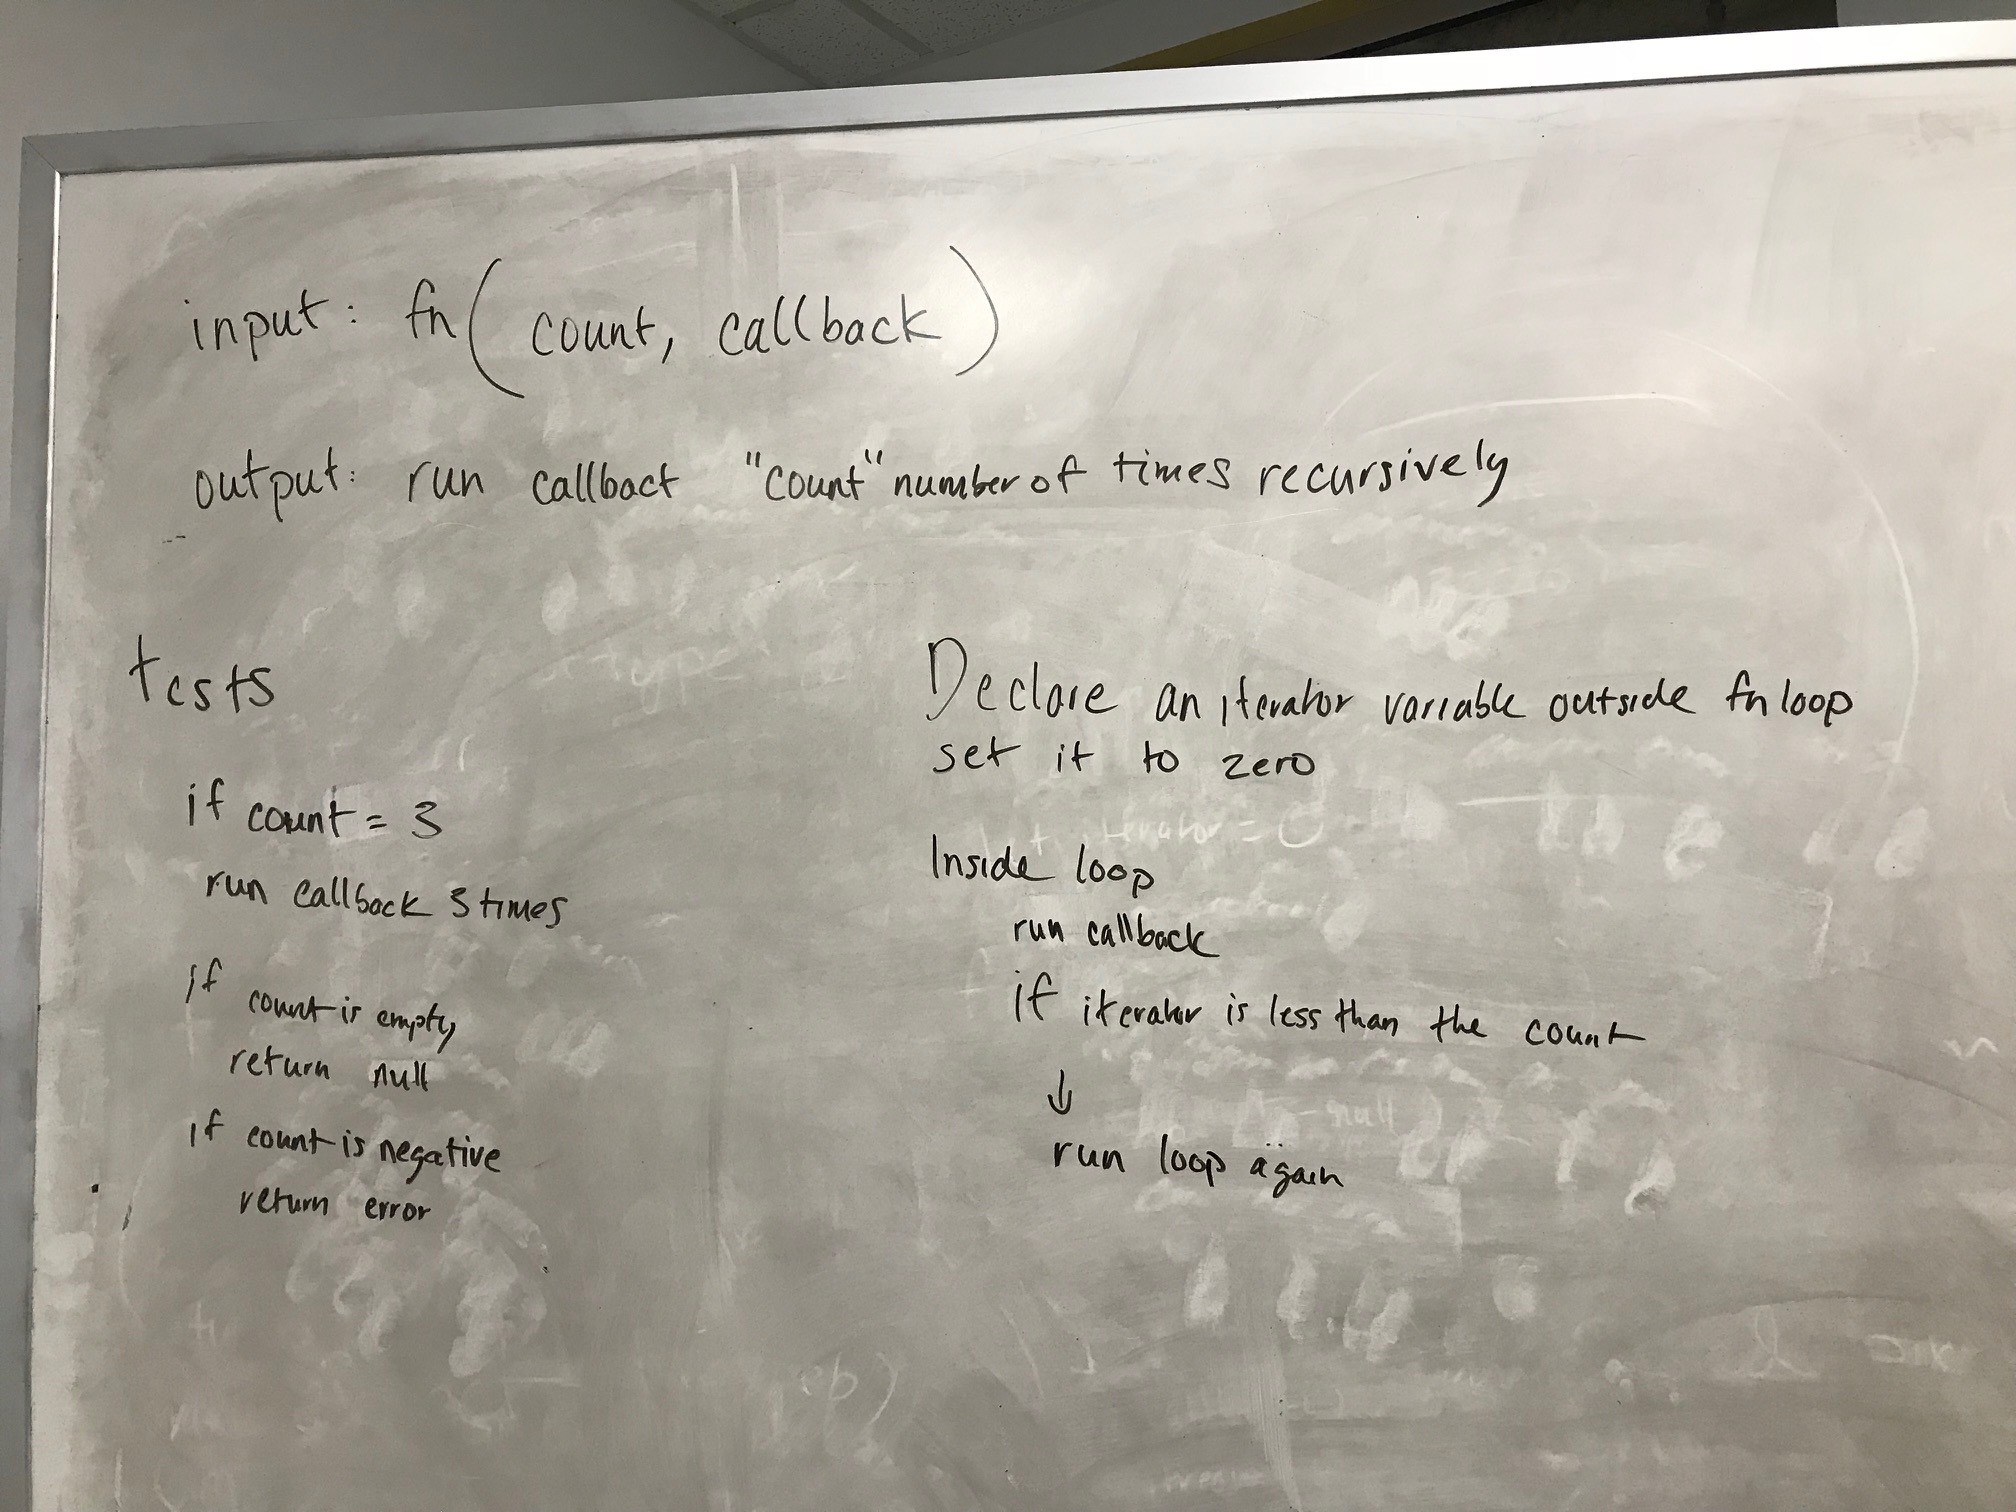 input: fn( count, callback )
output: run callback "count" number of times recursively
tests
if count = 3
run callback 3 times
if count is empty
return null
if count is negative
return error
Declare an iterator variable outside fn loop
set it to zero
Inside loop
run callback
if iterator is less than the count
↓
run loop again